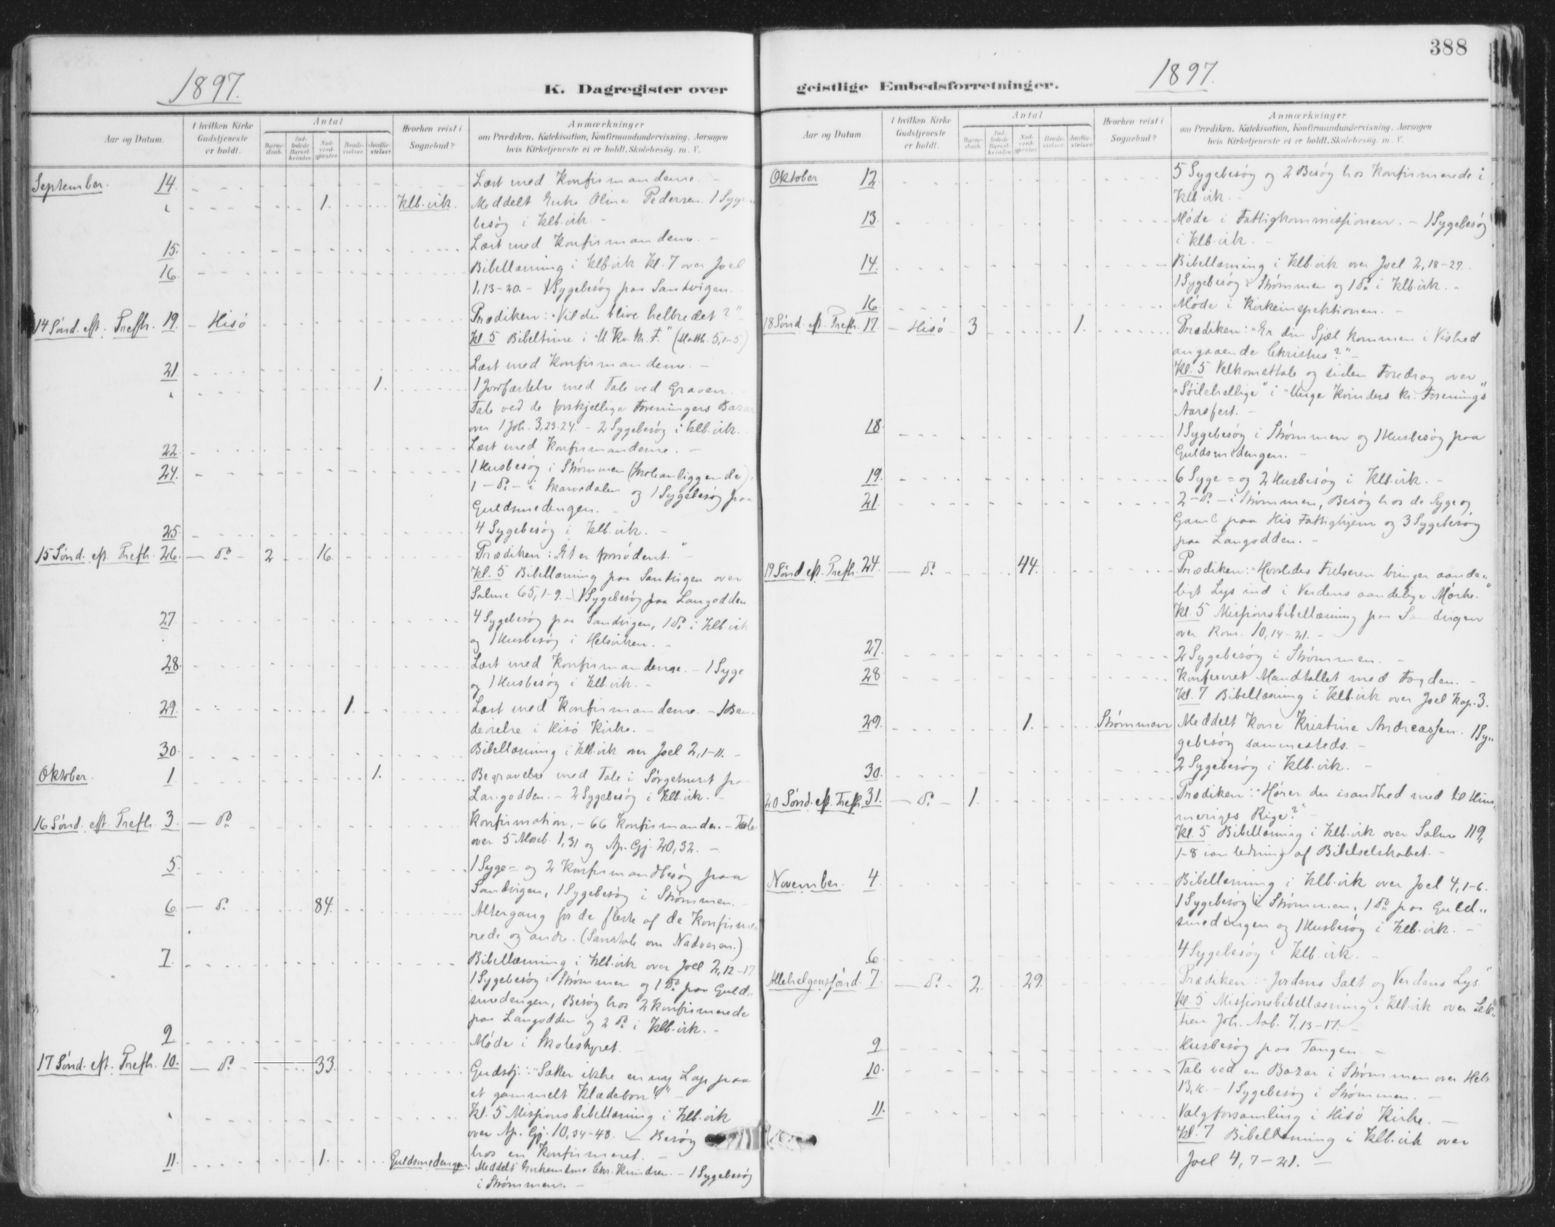 1897.
K. Dagregister over
Aar og Datum.
I hvilken Kirke Gudstjeneste er holdt.
Antal
Hvorhen reist i Sognebud?
Anmærkninger
om Prædiken, Katekisation, Konfirmandundervisning, Aarsagen
hvis Kirketjeneste ei er holdt, Skolebesøg, m. V.
September. 14. Læst med Konfirmanderne. -
1. Klb.vik. Meddelt Enke Oline Pedersen. 1 Syge-
besøg i Klb.vik -
15. Læst med Konfirmanderne. -
16. Bibellæsning i Klb.vik Kl. 7 over Joel
1, 13-20. - 1 Sygebesøg paa Sandvigen.
14 Sønd. eft. Trefh. 19. - Hisö Prædiken: "Vil du blive helbredet?" -
Kl. 5 Bibeltime i U. Kv. Kr. F. (Matth. 5, 1-5)
21 Læst med Konfirmanderne. -
1. 1 Jordfæstelse med Tale ved Graven. -
Tale ved de forskjellige Foreningers Basar
over 1 Joh. 3, 23-24. - 2 Sygebesøg i Klb.vik.
22 Læst med Konfirmanderne. -
24. 1 Husbesøg i Strømmen
1 - do - i og 1 Sygebesøg paa
Guldsmedengen. -
25 4 Sygebesøg i Klb.vik. -
15 Sønd. eft. Trefh. 26. - do - 2 16. Prædiken: "Et er fornødent." -
Kl. 5 Bibellæsning paa Sandvigen over
Salme 65, 1-9. - 1 Sygebesøg paa Langodden
27 4 Sygebesøg paa Sandvigen, 1 do i Klb.vik
og 1 Husbesøg i Helsviken. -
28 Læst med Konfirmanderne. - 1 Syge
og 1 Husbesøg i Klb.vik. -
29. 1. Læst med Konfirmanderne -
i Hisö Kirke. -
30. Bibellæsning i Klb.vik over Joel 2, 1-11. -
Oktober. 1 1. Begravelse med Tale i Sørgehuset paa
Langodden. - 2 Sygebesøg i Klb.vik. -
16 Sønd. eft. Trefh. 3 - do Konfirmation. - 66 Konfirmander. - Tale
over 5 Moseb. 1, 31 og Ap. Gj. 20, 32. -
5. 1 Syge= og 2 Konfirmandbesøg paa
Sandvigen, 1 Sygebesøg i Strømmen. -
6 - do. 84. Altergang for de fleste af de Konfirme-
rede og andre. (Samtale om Nadveren.)
7 Bibellæsning i Klb.vik over Joel 2, 12-17
1 Sygebesøg i Strømmen og 1 do paa Guld-
smedengen, Besøg hos 2 Konfirmerede
paa Langodden og 2 do i Klb.vik. -
9 Møde i Skolestyret
17 Sønd. eft. Trefh. 10. - do. 33. Gudstj: "Sætter ikke en ny Lap paa
et gammelt Klædebon!"
Kl. 5 Missionsbibellæsning i Klb.vik
over Ap. Gj. 10, 34-48. - Besøg
hos en Konfirmeret. -
11. 1. Guldsmedengen. Meddelt - 1 Sygebesøg
i Strømmen. -
388
1897.
geistlige Embedsforretninger.
Aar og Datum.
I hvilken Kirke Gudstjeneste er holdt.
Antal
Hvorhen reist i Sognebud?
Anmærkninger
om Prædiken, Katekisation, Konfirmandundervisning, Aarsagen
hvis Kirketjeneste ei er holdt, Skolebesøg, m. V.
Oktober 12 5 Sygebesøg og 2 Besøg hos Konfirmerede i
Klb.vik. -
13 Møde i Fattigkommissionen. - 1 Sygebesøg
i Klb.vik. -
14. Bibellæsning i Klb.vik over Joel 2, 18-27.
1 Sygebesøg i Strømmen og 1 do i Klb.vik. -
16 Møde i Kirkeinspektionen. -
18 Sønd. eft. Trefh. 17 - Hisö 3 1. Prædiken: "Er din Sjæl kommen i Vished
angaaende Christus?" -
Kl. 5 Velkomsttale og siden Foredrag over
"Söilehellige" i "Unge Kvinders Kr. Forenings"
Aarsfest. -
18. 1 Sygebesøg i Strømmen og 1 Husbesøg paa
Guldsmedengen. -
19. 6 Syge= og 2 Husbesøg i Klb.vik. -
21 2 - do - i Strømmen, Besøg hos de Syge og
Gamle paa His Fattighjem og 3 Sygebesøg
paa Langodden. -
19 Sønd. eft. Trefh. 24. - do. 44. Prædiken: "Hvorledes Frelseren bringer aande-
ligt Lys ind i Verdens aandelige Mørke."
Kl. 5 Missionsbibellæsning paa Sandvigen
over Rom. 10, 14-21. -
27. 2 Sygebesøg i Strømmen. -
28 Konfereret Mandtallet med Fogden. -
Kl. 7 Bibellæsning i Klb.vik over Joel Kap. 3.
29. 1. Strømmen Meddelt Kone Kristine Andreassen. 1 Sy-
gebesøg sammesteds. -
30. 2 Sygebesøg i Klb.vik. -
20 Sønd. eft. Trefh. 31. - do - 1. Prædiken: "Hører du i sandhed med til Him-
meriges Rige?" -
Kl. 5 Bibellæsning i Klb.vik over Salme 119,
1-8 i anledning af Bibelselskabet. -
November. 4. Bibellæsning i Klb.vik over Joel 4, 1-6.
1 Sygebesøg i Strømmen, 1 do paa Guld-
smedengen og 1 Husbesøg i Klb.vik. -
6 4 Sygebesøg i Klb.vik. -
Allehelgenssønd. 7. - do - 2. 29. Prædiken: "Jordens Salt og Verdens Lys"
Kl. 5 Missionsbibellæsning i Klb.vik over
Joh. Aab. 7, 13-17. -
9 Husbesøg paa Tangen. -
10. Tale ved en Bazar i Strømmen over Heb.
13, 16. - 1 Sygebesøg i Strømmen. -
11. Valgforsamling i Hisö Kirke. -
Kl. 7 Bibellæsning i Klb.vik over
Joel 4, 7-21. -